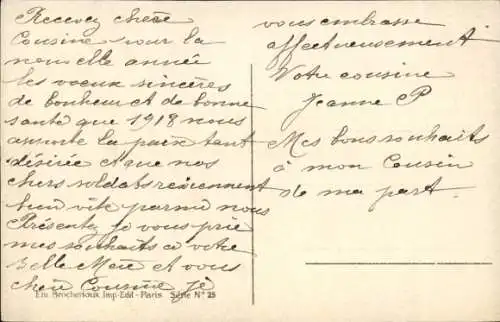 Recevez chère
Cousine pour la
nouvelle année
les voeux sincères
de bonheur et de bonne
santé que 1918 nous
apporte la paix tant
désirée et que nos
chers soldats reviennent
bien vite parmi nous
Présentez je vous prie
mes souhaits a votre
Belle Mère et vous
chère Cousine je
vous embrasse
affectueusement
Votre cousine
Jeanne P
Mes bons souhaits
à mon Cousin
de ma part.
Em. Brocherioux Imp-Edit - Paris Série N° 25